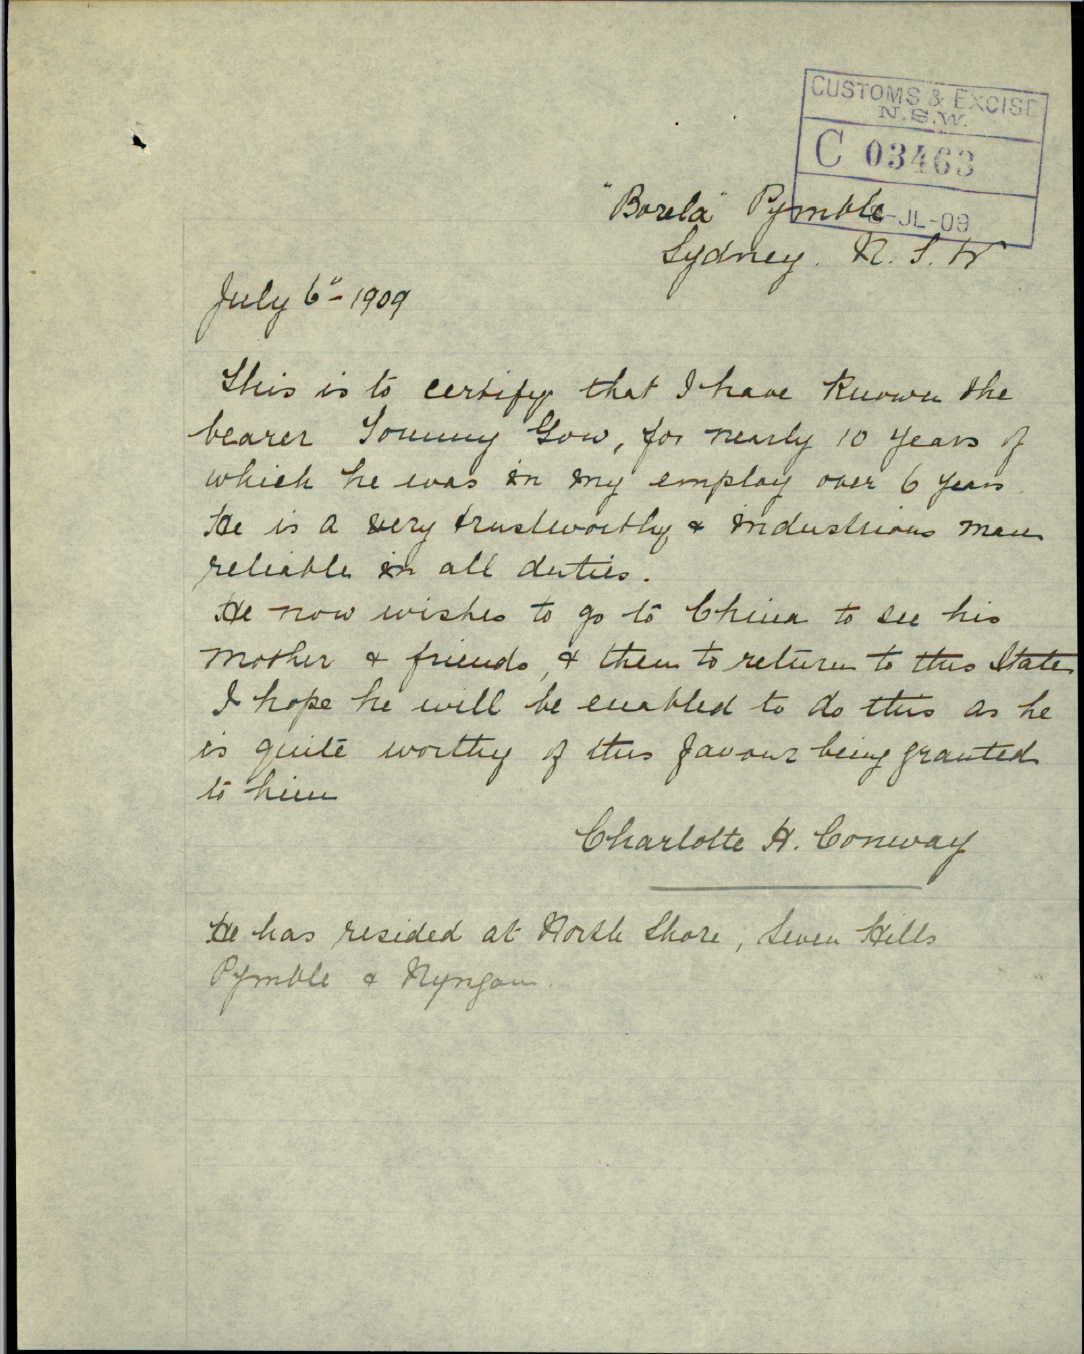 CUSTOMS & EXCISE
N.S.W.
C 03463
-JL-09
"Borela" Pymble
Sydney. N. S. W
July 6" - 1909
This is to certify that I have known the
bearer Tommy Gow, for nearly 10 years of
which he was in my employ over 6 years
He is a very trustworthy & industrious man
reliable in all duties.
He now wishes to go to China to see his
mother & friends, & then to return to this State
I hope he will be enabled to do this as he
is quite worthy of this favour being granted
to him
Charlotte H. Conway
He has resided at North Shore, Seven Hills
Pymble & Nyngan.